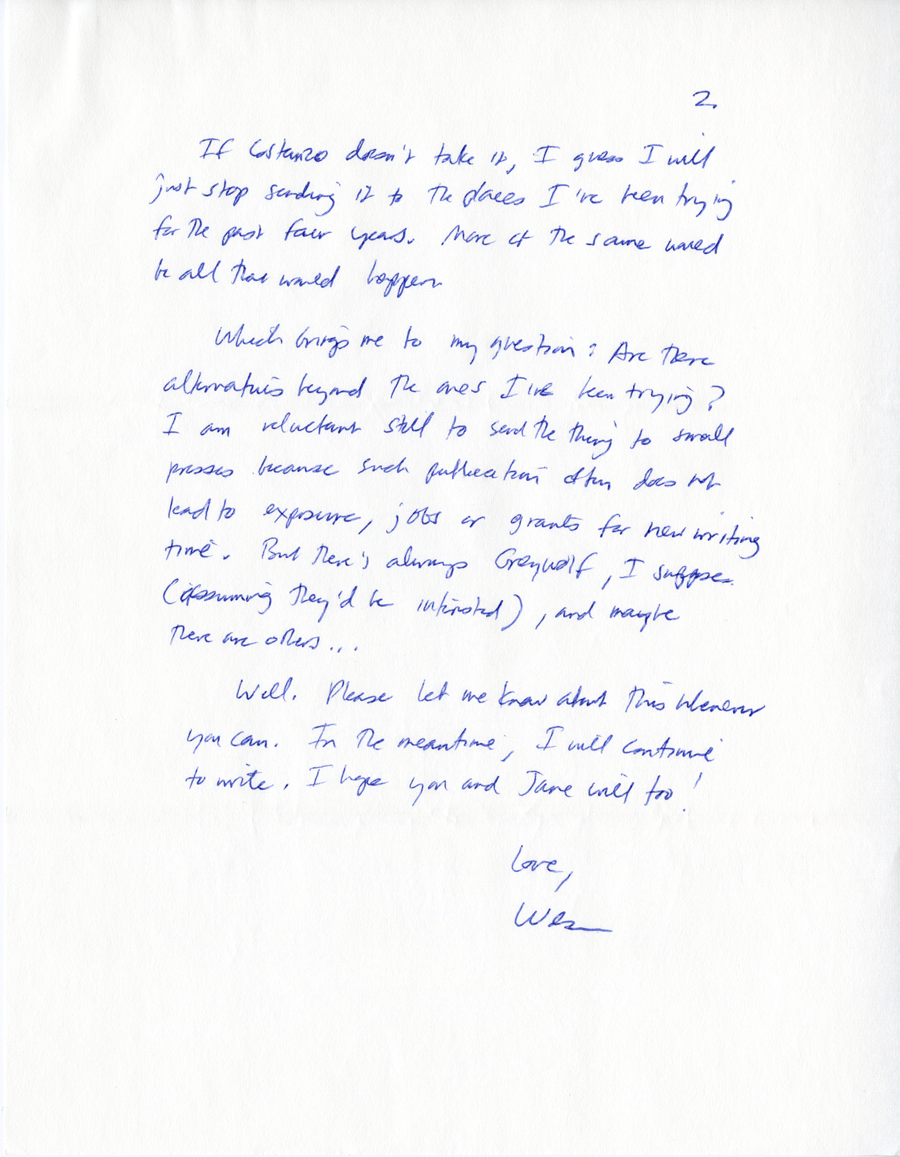 2.
If Costanzo doesn't take it, I guess I will
just stop sending it to the places I've been trying
for the past four years. More of the same would
be all that would happen
Which brings me to my question: Are there
alternatives beyond the ones I've been trying?
I am reluctant still to send the thing to small
presses because such publication often does not
lead to exposure, jobs or grants for new writing
time. But there's always Greywolf, I suppose
(assuming they'd be interested), and maybe
there are others...
Well. Please let me know about this whenever
you can. In the meantime, I will continue
to write. I hope you and Jane will too!
Love,
Wes